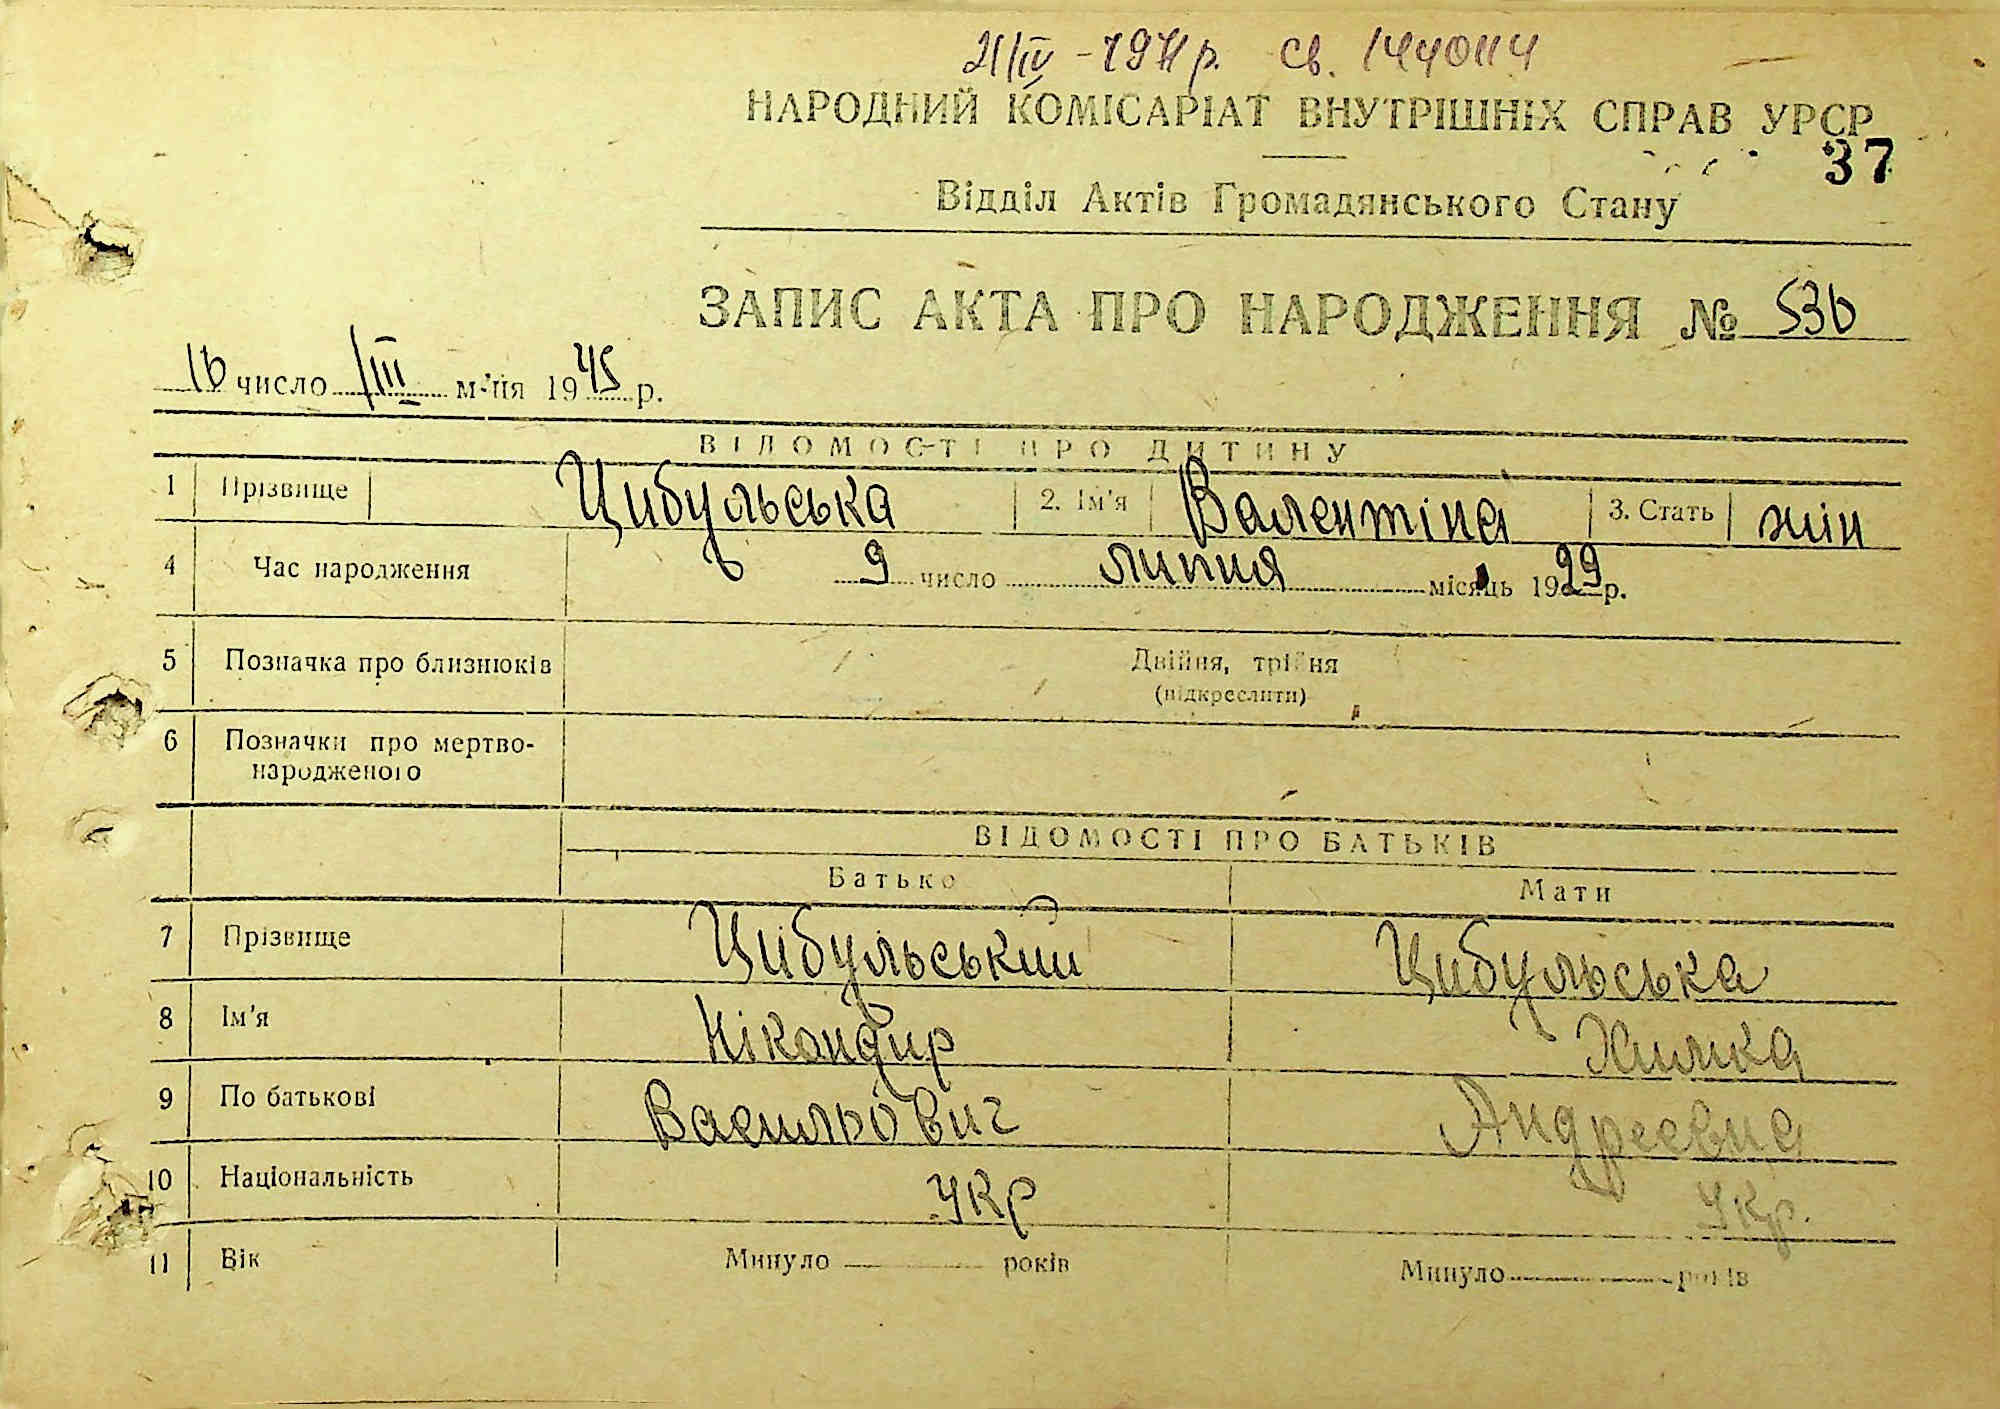 21/IV - 1971 р. св. 144014
НАРОДНИЙ КОМІСАРІАТ ВНУТРІШНІХ СПРАВ УРСР
37
Відділ Актів Громадянського Стану
ЗАПИС АКТА ПРО НАРОДЖЕННЯ № 536
16 число /III м-ця 1945 р.
ВІДОМОСТІ ПРО ДИТИНУ
1 Прізвище Цибульська 2. Ім'я Валентіна 3. Стать жін
4 Час народження 9 число липня місяць 1929 р.
5 Позначка про близнюків Двійня, трійня
(підкреслити)
6 Позначки про мертво-
народженого
ВІДОМОСТІ ПРО БАТЬКІВ
Батько Мати
7 Прізвище Цибульський Цибульська
8 Ім'я Нікандир Химка
9 По батькові Васильович Андреевна
10 Національність Укр Укр.
11 Вік Минуло років Минуло років